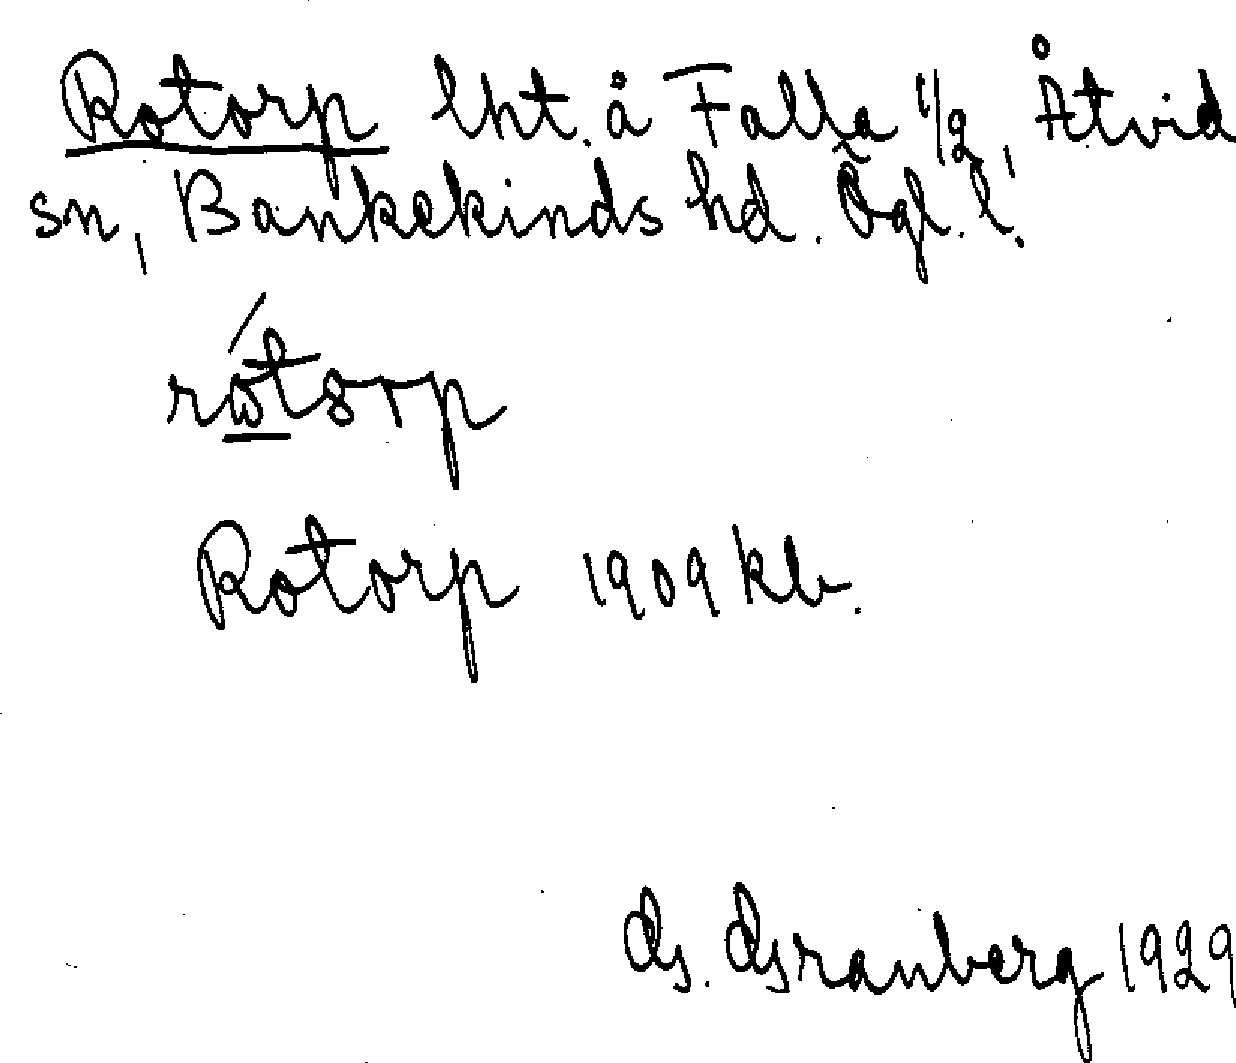 Rotorp lht. å Falla 1/2, Åtvid
sn, Bankekinds hd. Ögl. l.
rótorp
Rotorp 1909 kb.
G. Granberg 1929